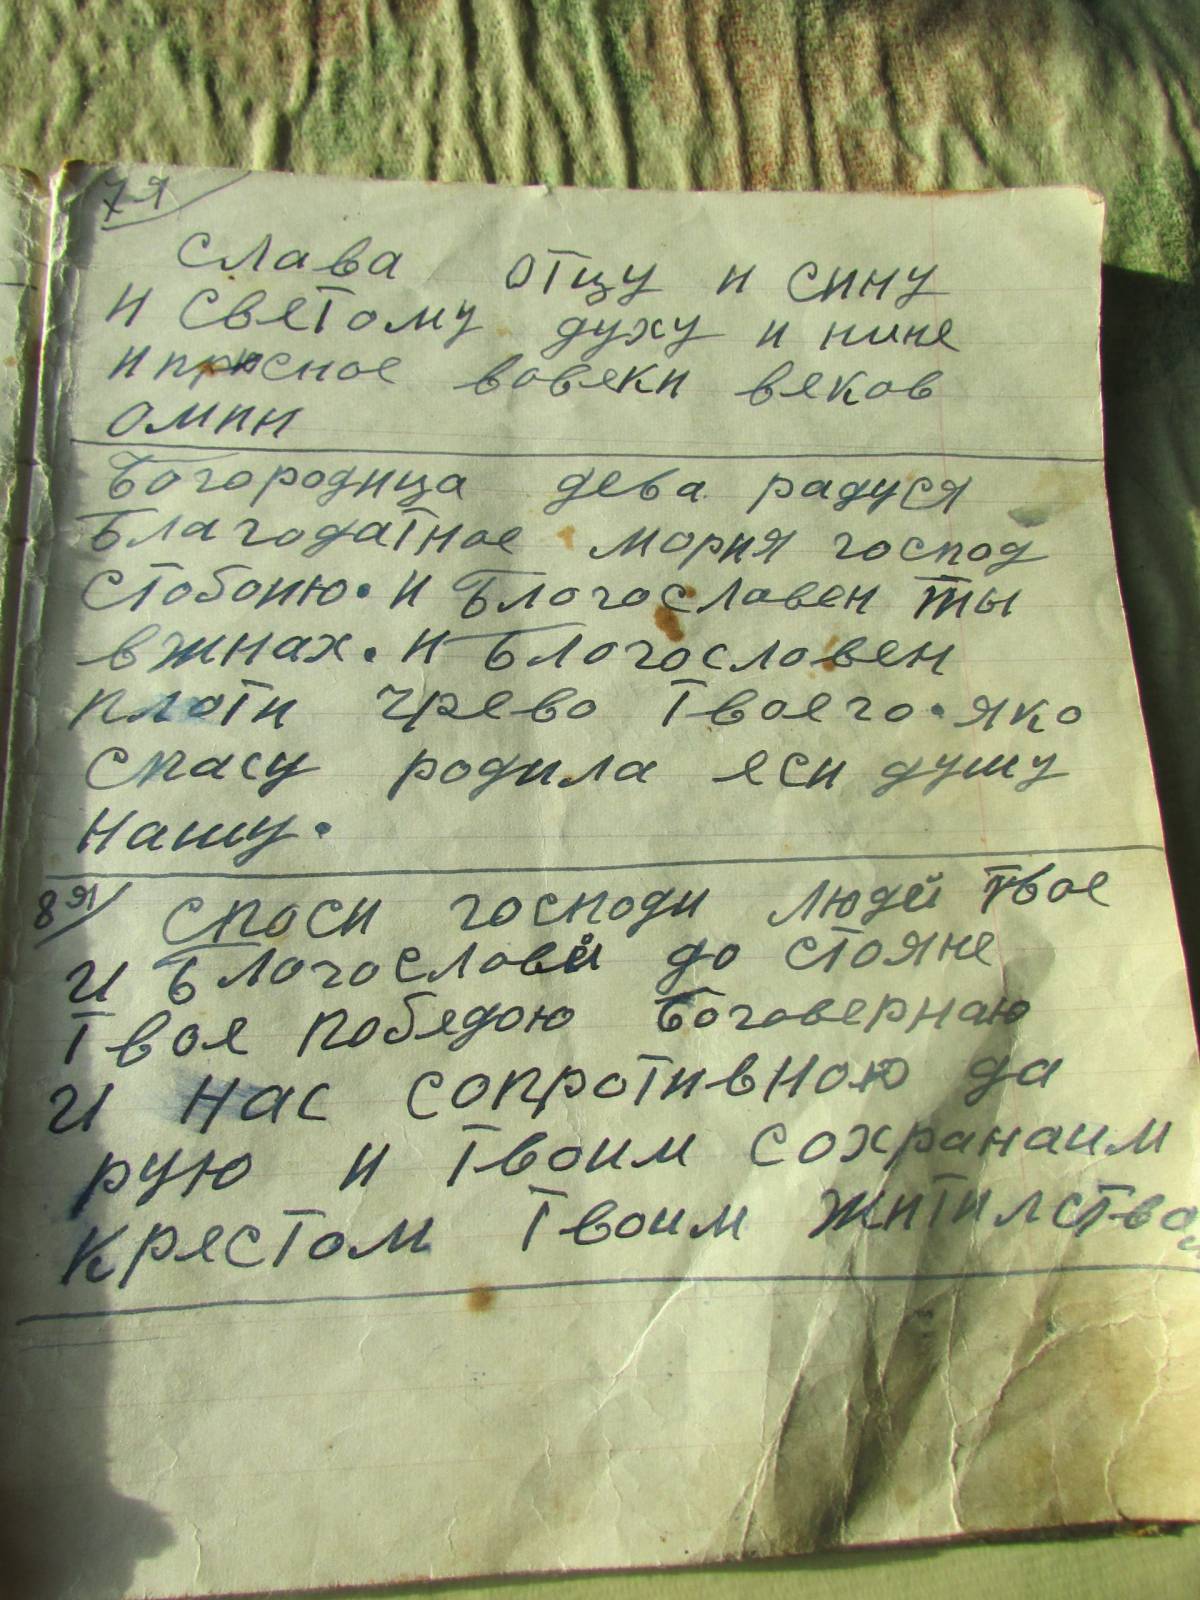 7я
слава отцу и сину
и светому духу и нине
ипрюсное вовеки веков
омин
Богородица дева радуся
Благодатное мория господ
стобоию. и Блогословен ты
вжнах. и Благословен
плоти чрево твоего. яко
спасу родила еси душу
нашу.
8я
споси господи людей твое
и Благословй до стояне
твое победою Боговернаю
и нас сопротивною да
рую и твоим сохранаим
крестом твоим житилства